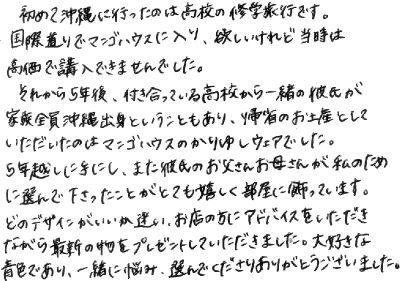 初めて沖縄に行ったのは高校の修学旅行です。
国際通りでマンゴハウスに入り、欲しいけれど当時は
高価で講入できませんでした。
それから5年後、付き合っている高校から一緒の彼氏が
家族全員沖縄出身ということもあり、帰省のお土産として
いただいたのはマンゴハウスのかりゆしウェアでした。
5年越しに手にし、また彼氏のお父さんお母さんが私のため
に選んで下さったことがとても嬉しく部屋に飾っています。
どのデザインがいいか迷い、お店の方にアドバイスをいただき
ながら最新の物をプレゼントしていただきました。大好きな
青色であり、一緒に悩み、選んでくださりありがとうございました。